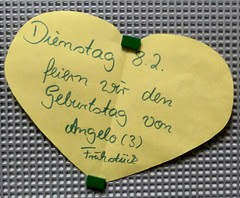 Dienstag 8.2.
feiern wir den
Geburtstag von
Angelo (3)
Frühstück